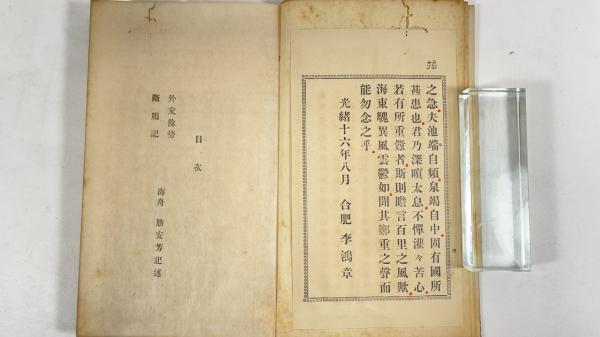 之急夫池端自頻泉竭自中固有國所
甚患也君乃深喧太息不憚灌々苦心
若有所重聳者斯則瞻言百里之風歟
海東騩異風雲鬱如聞其鄕重之聲而
能勿念之乎
光緒十六年八月 合肥 李鴻章
目次
外交餘勢
斷膓記
海舟 勝安芳記述